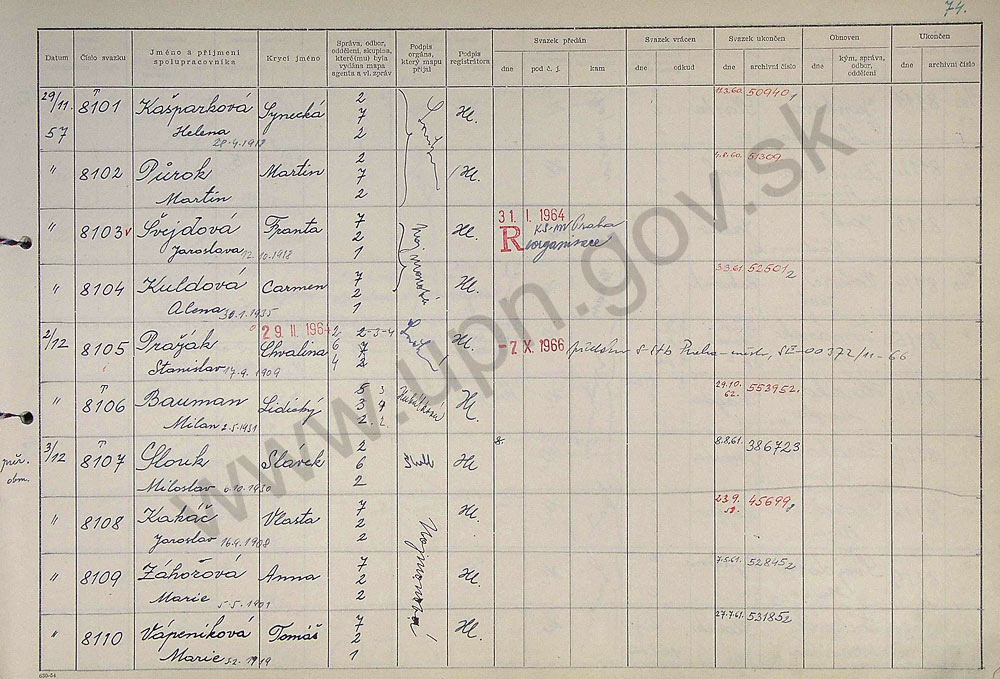 74.
Datum
Číslo svazku
Jméno a příjmení
spolupracovníka
Krycí jméno
Správa, odbor,
oddělení, skupina,
které(mu) byla
vydána mapa
agenta a vl. zpráv
Podpis
orgánu,
který mapu
přijal
Podpis
registrátora
Svazek předán
dne
pod č. j.
kam
Svazek vrácen
dne
odkud
Svazek ukončen
dne
archivní číslo
Obnoven
dne
kým, správa,
odbor,
oddělení
Ukončen
dne
archivní číslo
29/11. 57 8101 Kašparková Synecká 2 7 2 Hl. 11.3.60. 50940 1
Helena
28.4.1918
" 8102 Půrok Martin 2 7 2 Hl. 51309
Martin
" 8103 v Švejdová Franta 7 2 1 Hl. 31. I. 1964 Praha
Jaroslava 12.10.1918 R reorganisace
" 8104 Kuldová Carmen 7 2 1 Hl. 3.3.61. 52501 2
Alena 30.1.1935
29. II. 1964
2/12 8105 Pražák Chvalina 2-3-4 Hl. -7. X. 1966 Praha
Stanislav 17.9.1909
" 8106 Bauman Lidický 5 3 2 Hl. 29.10. 62. 55395 2.
Milan 2.5.1931
3/12 8107 Slouk Slávek 2 6 2 Hl. 8. 8.8.61. 38672 3
Miloslav 6.10.1930
" 8108 Kakáč Vlasta 7 2 2 Hl. 23.9. 58. 45699
Jaroslav 16.9.1908
" 8109 Záhořová Anna 7 2 2 Hl. 7.5.61. 52845 2
Marie 5.5.1901
" 8110 Vápeníková Tomáš 7 2 1 Hl. 27.7.61. 53185 2
Marie 1919
www.upn.gov.sk